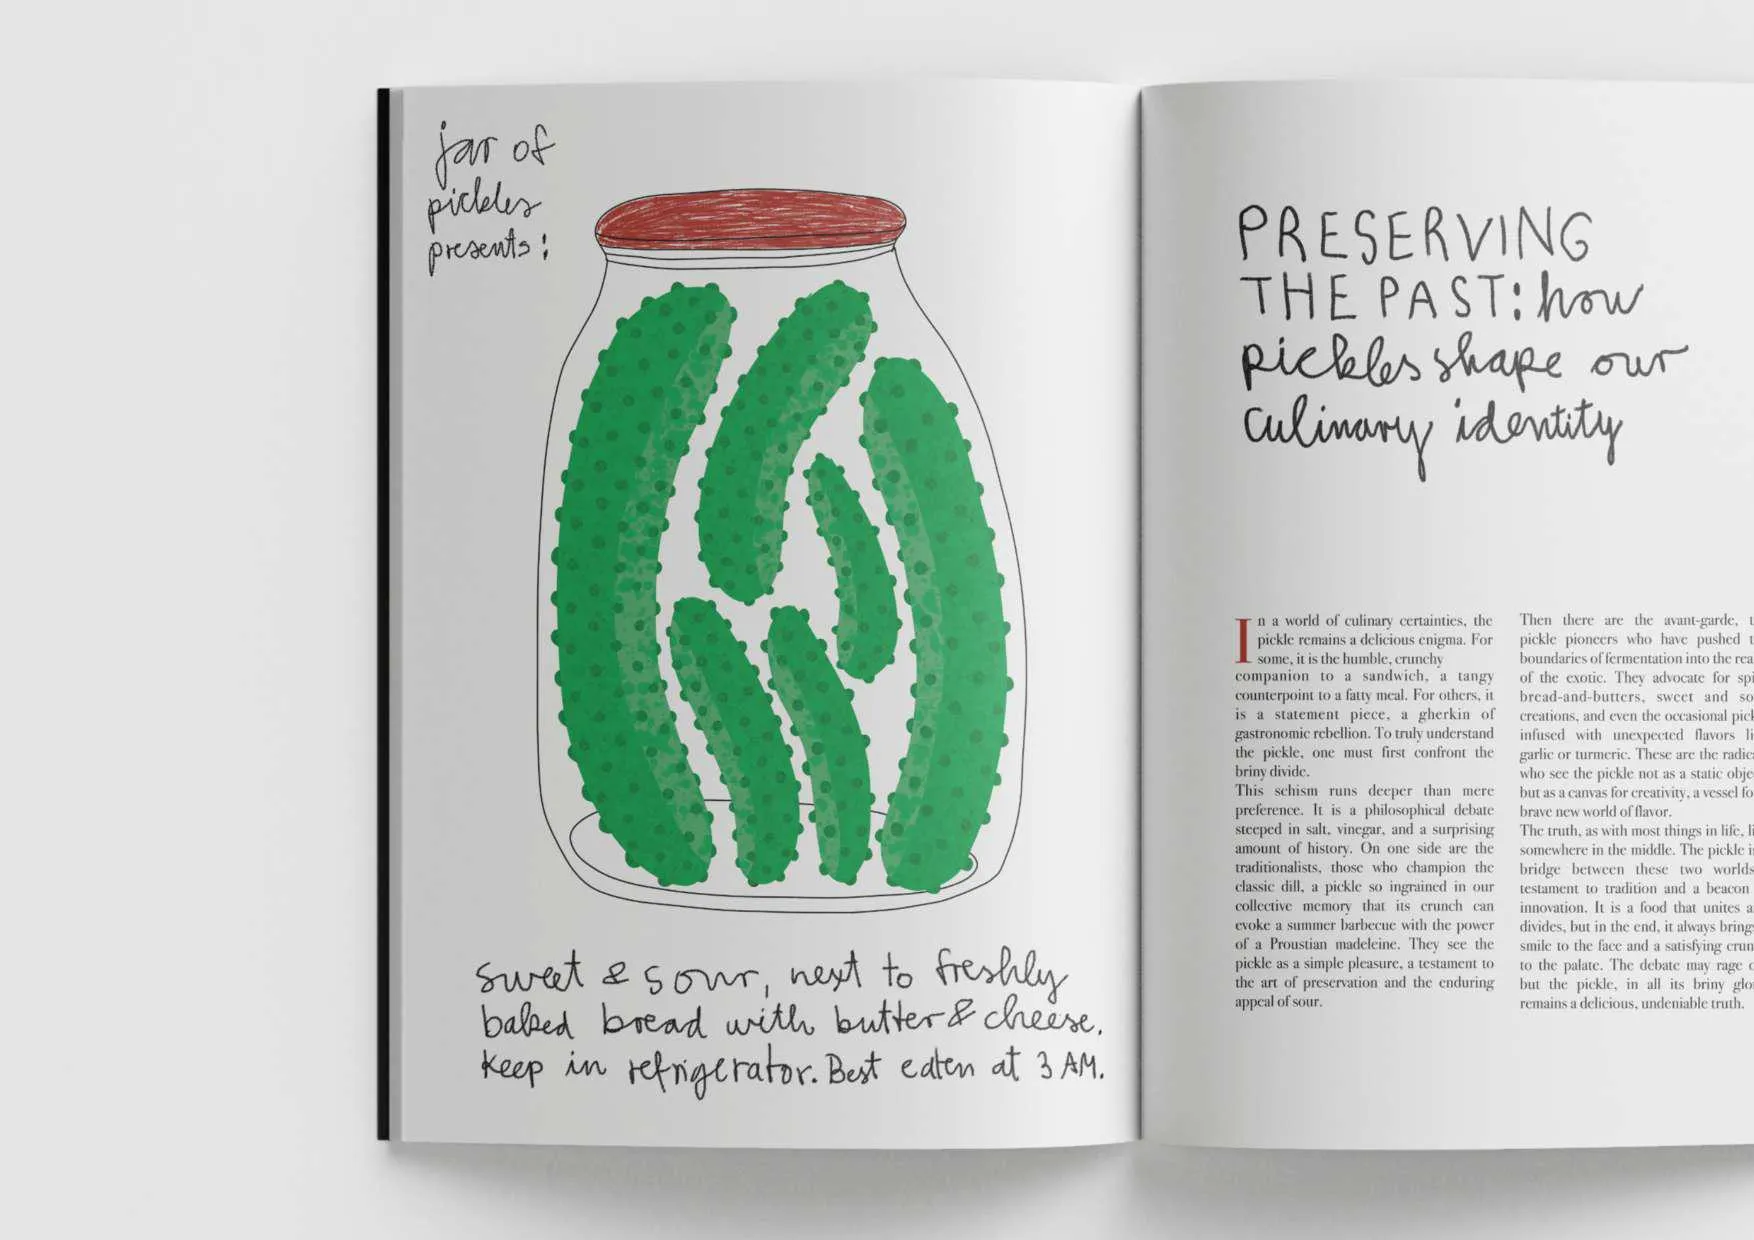 jar of
pickles
presents:
sweet & sour, next to freshly
baked bread with butter & cheese.
Keep in refrigerator. Best eaten at 3 AM.
PRESERVING
THE PAST: how
pickles shape our
culinary identity
In a world of culinary certainties, the
pickle remains a delicious enigma. For
some, it is the humble, crunchy
companion to a sandwich, a tangy
counterpoint to a fatty meal. For others, it
is a statement piece, a gherkin of
gastronomic rebellion. To truly understand
the pickle, one must first confront the
briny divide.
This schism runs deeper than mere
preference. It is a philosophical debate
steeped in salt, vinegar, and a surprising
amount of history. On one side are the
traditionalists, those who champion the
classic dill, a pickle so ingrained in our
collective memory that its crunch can
evoke a summer barbecue with the power
of a Proustian madeleine. They see the
pickle as a simple pleasure, a testament to
the art of preservation and the enduring
appeal of sour.
Then there are the avant-garde,
pickle pioneers who have pushed
boundaries of fermentation into the
of the exotic. They advocate for
bread-and-butters, sweet and
creations, and even the occasional
infused with unexpected flavors
garlic or turmeric. These are the
who see the pickle not as a static
but as a canvas for creativity, a vessel
brave new world of flavor.
The truth, as with most things in life,
somewhere in the middle. The pickle
bridge between these two worlds
testament to tradition and a beacon
innovation. It is a food that unites
divides, but in the end, it always
smile to the face and a satisfying
to the palate. The debate may rage
but the pickle, in all its briny
remains a delicious, undeniable truth.